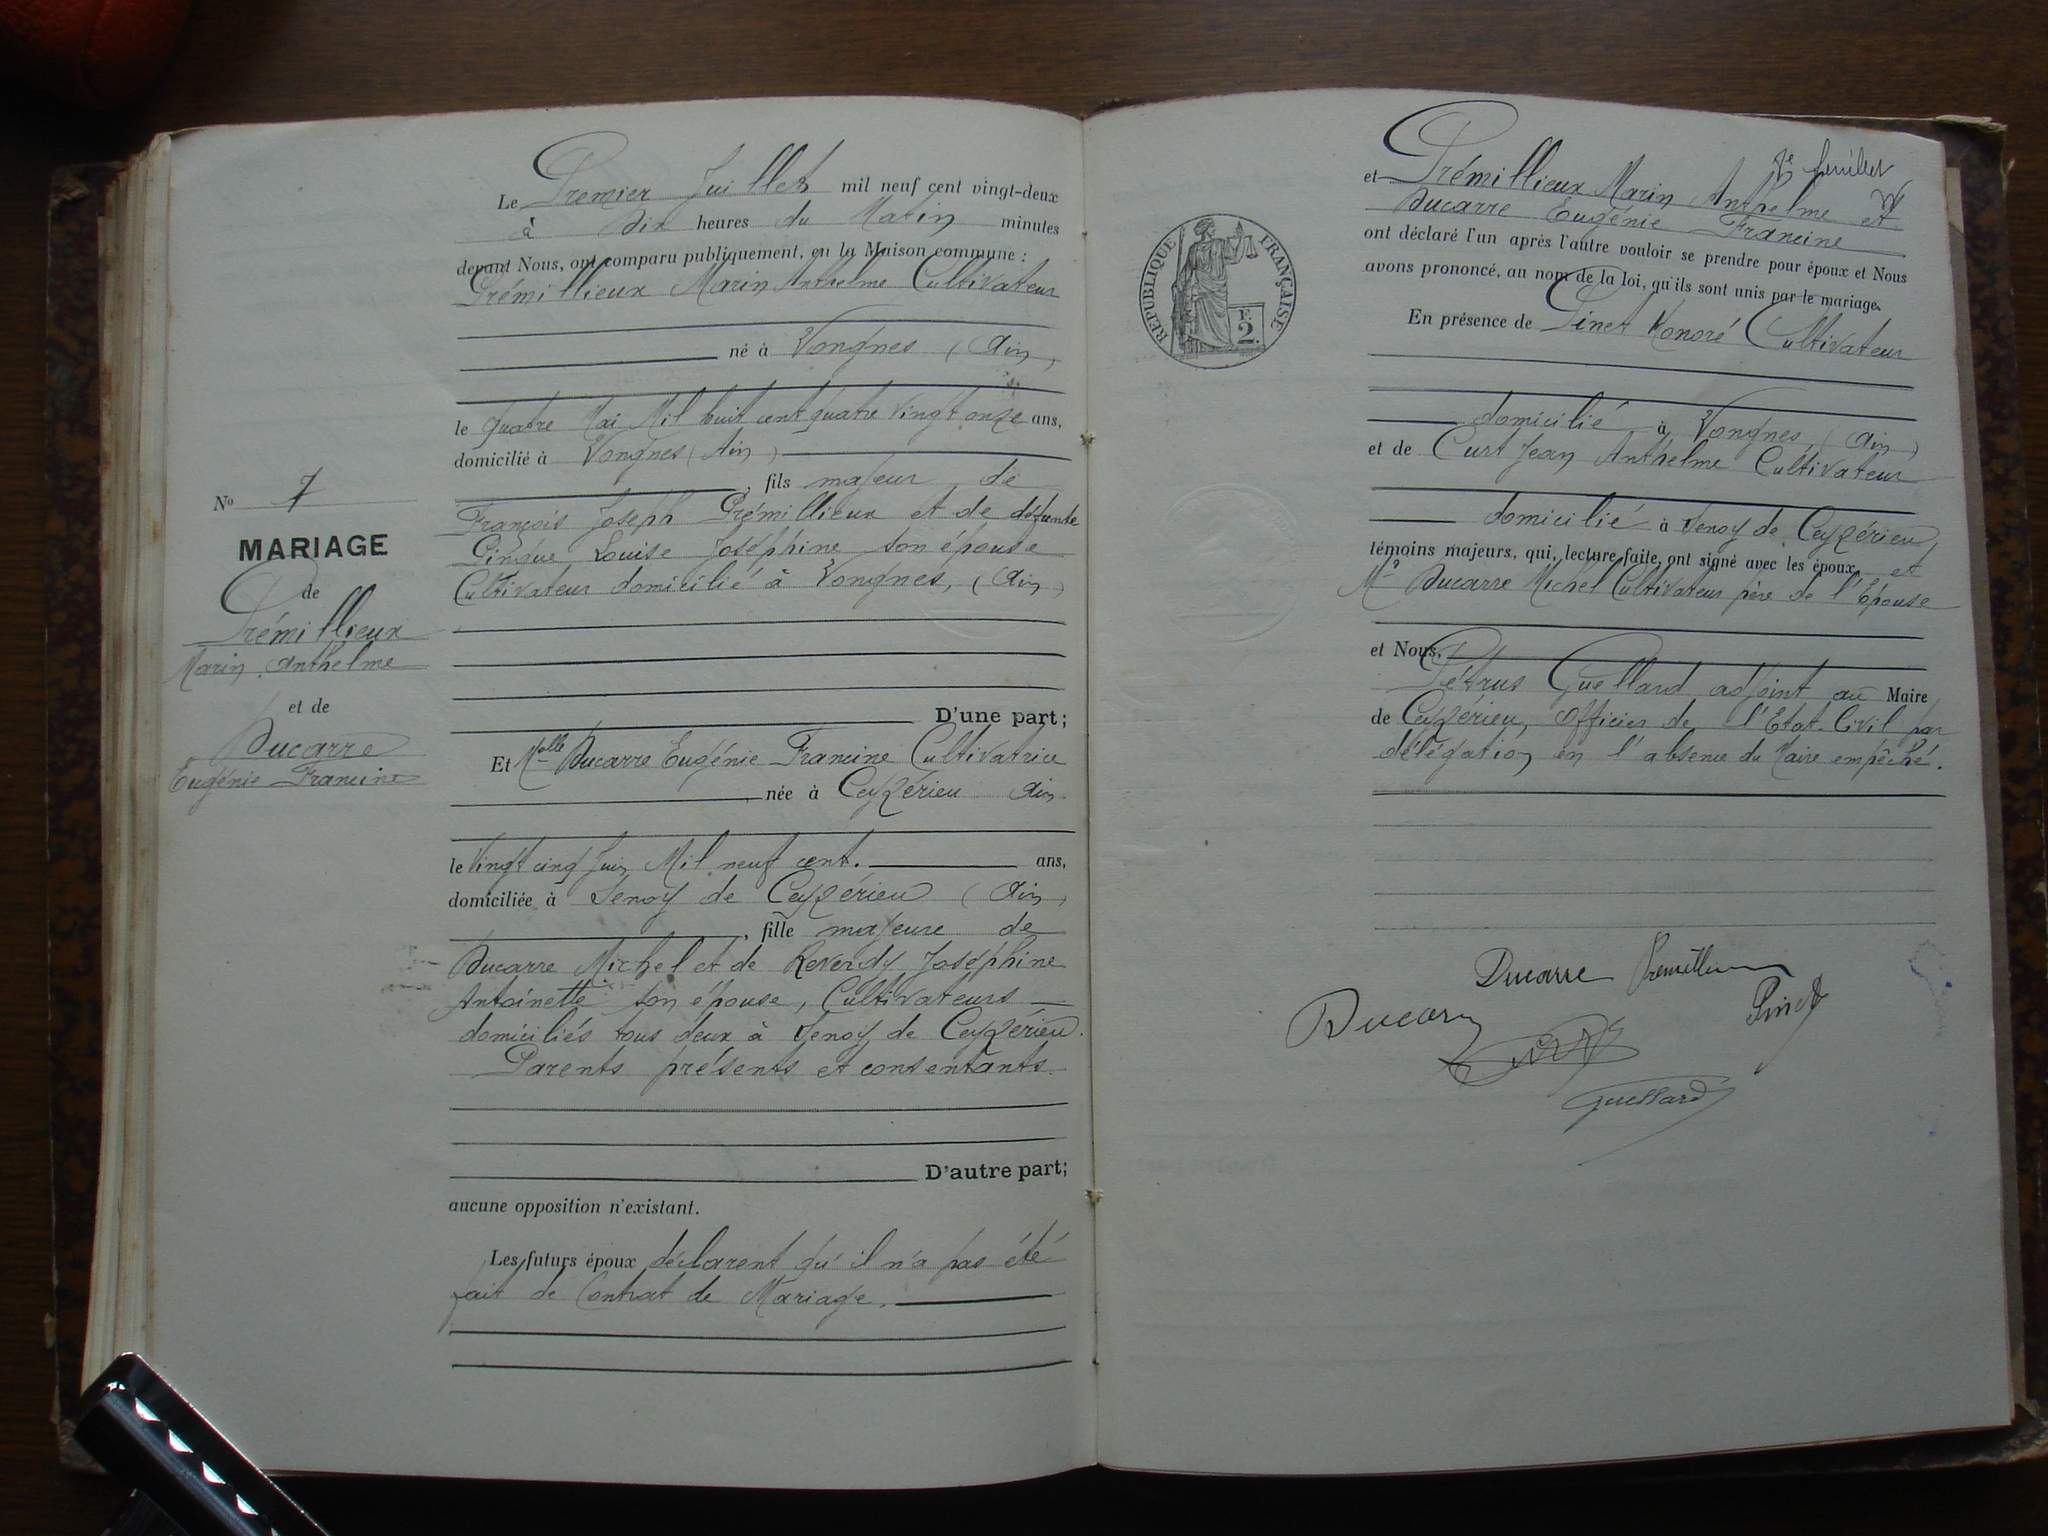 Le Premier Juillet mil neuf cent vingt-deux
à Dix heures du Matin minutes
devant Nous, ont comparu publiquement, en la Maison commune :
Prémillieux Marin Anthelme Cultivateur
né à Vongnes (Ain)
le quatre Mai Mil huit cent quatre vingt onze ans,
domicilié à Vongnes (Ain)
, fils majeur de
François Joseph Prémillieux et de défunte
Pingue Louise Joséphine son épouse
Cultivateur domicilié à Vongnes, (Ain)
D'une part;
Et Melle Ducarre Eugénie Francine Cultivatrice
née à Ceyzérieu Ain
le Vingt cinq Juin Mil neuf cent. ans,
domiciliée à Senoy de Ceyzérieu (Ain)
, fille majeure de
Ducarre Michel et de Reverdy Joséphine
Antoinette son épouse, Cultivateurs
domiciliés tous deux à Senoy de Ceyzérieu.
Parents présents et consentants
D'autre part;
aucune opposition n'existant.
Les futurs époux déclarent qu'il n'a pas été
fait de Contrat de Mariage.
No 7
MARIAGE
de
Prémillieux
Marin Anthelme
et de
Ducarre
Eugénie Francine
7e feuillet
et Prémillieux Marin Anthelme et
Ducarre Eugénie Francine
ont déclaré l'un après l'autre vouloir se prendre pour époux et Nous
avons prononcé, au nom de la loi, qu'ils sont unis par le mariage.
En présence de Pinet Honoré Cultivateur
domicilié à Vongnes, (Ain)
et de Curt Jean Anthelme Cultivateur
domicilié à Senoy de Ceyzérieu
témoins majeurs, qui, lecture faite, ont signé avec les époux et
Mr Ducarre Michel Cultivateur père de l'Epouse
et Nous,
Pétrus Guelland adjoint au Maire
de Ceyzérieu, Officier de l'Etat-Civil par
délégation en l'absence du Maire empêché.
RÉPUBLIQUE FRANÇAISE
F.
2.
Ducarre Premillieu
Ducarre Pinet
Curt